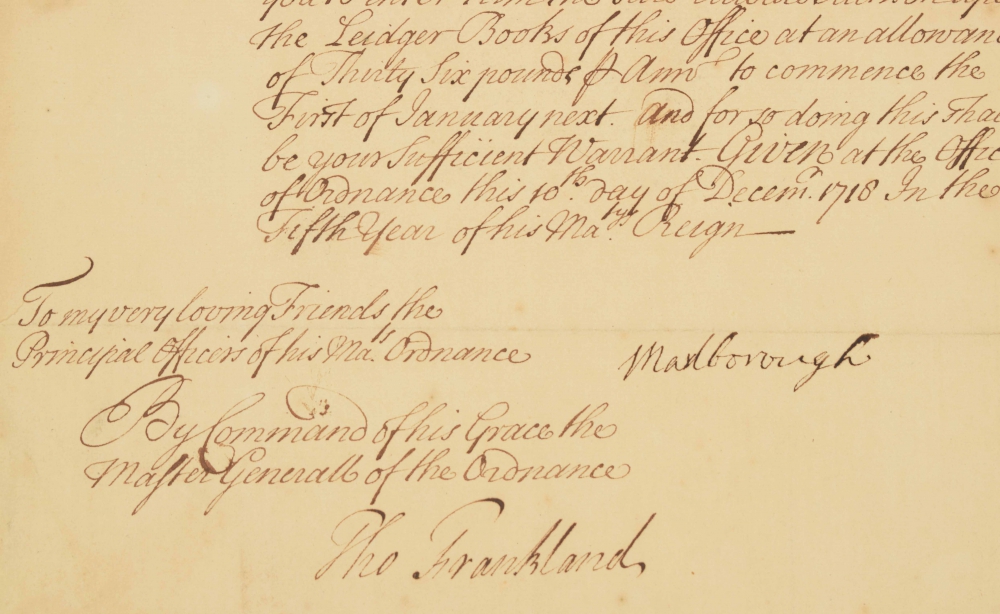 the Leidger Books of this Office at an allowan
of Thirty Six pounds ⅌ Annm to commence the
First of January next. And for so doing this Shal
be your Sufficient Warrant. Given at the Offic
of Ordnance this 10th. day of Decemr. 1718 In the
Fifth Year of his Matys Reign
To my very loving Friends the
Principal Officers of his Mats Ordnance
Marlborough
By Command of his Grace the
Master Generall of the Ordnance
Tho Frankland